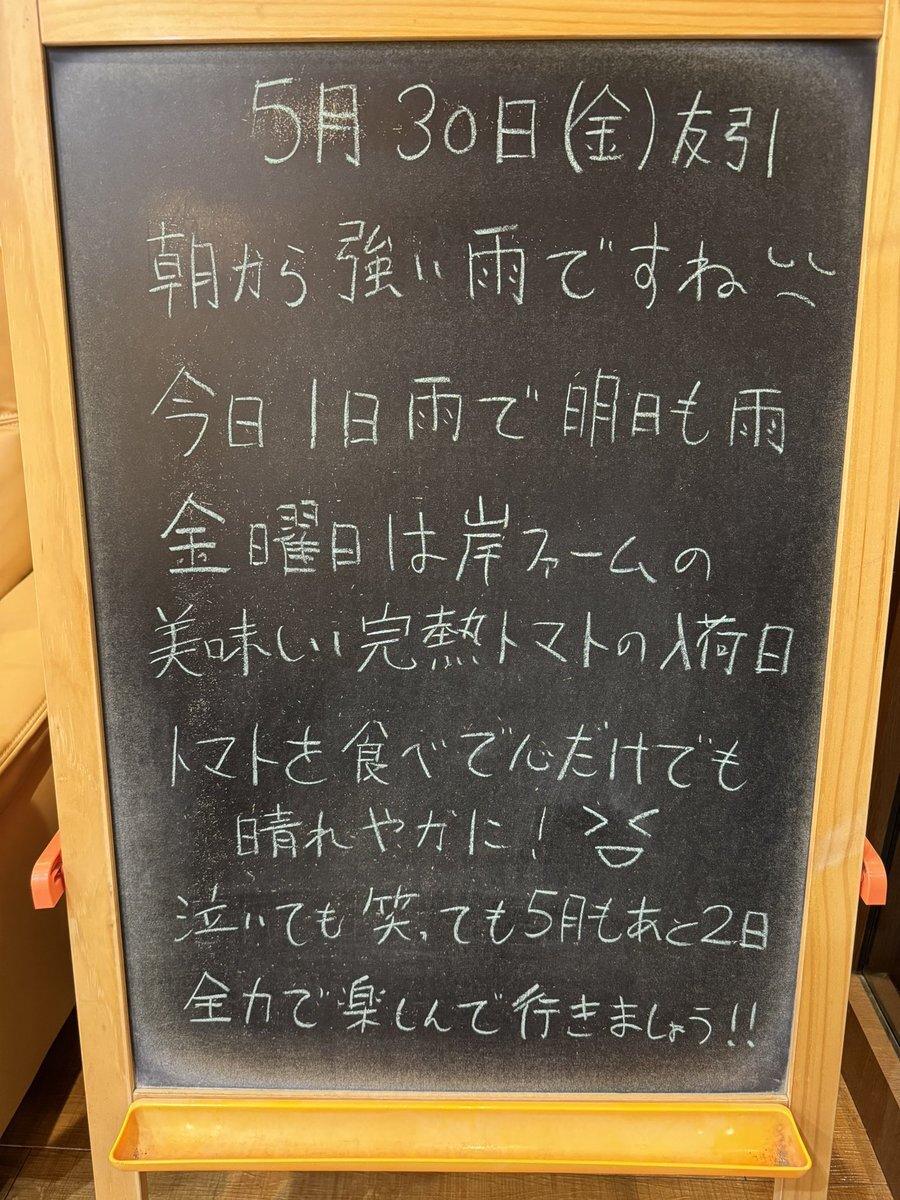 5月30日(金)友引
朝から強い雨ですね
今日1日雨で明日も雨
金曜日は岸ファームの
美味しい完熟トマトの入荷日
トマトを食べて心だけでも
晴れやかに!
泣いても笑っても5月もあと2日
全力で楽しんで行きましょう!!